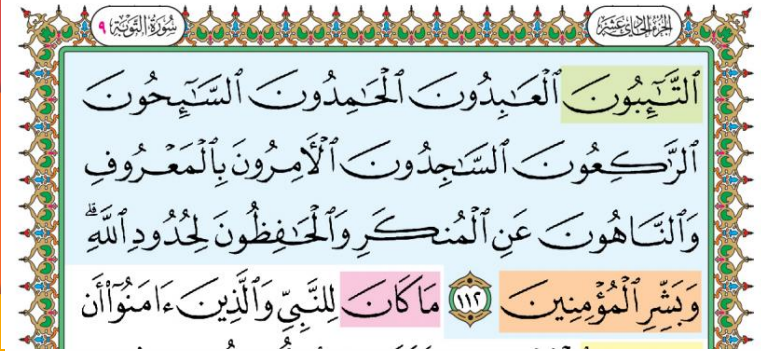 الجزء الحادي عشر
سورة التوبة ٩
ٱلتَّـٰٓئِبُونَ ٱلْعَـٰبِدُونَ ٱلْحَـٰمِدُونَ ٱلسَّـٰٓئِحُونَ
ٱلرَّٰكِعُونَ ٱلسَّـٰجِدُونَ ٱلْـَٔامِرُونَ بِٱلْمَعْرُوفِ
وَٱلنَّاهُونَ عَنِ ٱلْمُنكَرِ وَٱلْحَـٰفِظُونَ لِحُدُودِ ٱللَّهِ ۗ
وَبَشِّرِ ٱلْمُؤْمِنِينَ ١١٢ مَا كَانَ لِلنَّبِىِّ وَٱلَّذِينَ ءَامَنُوٓا۟ أَن